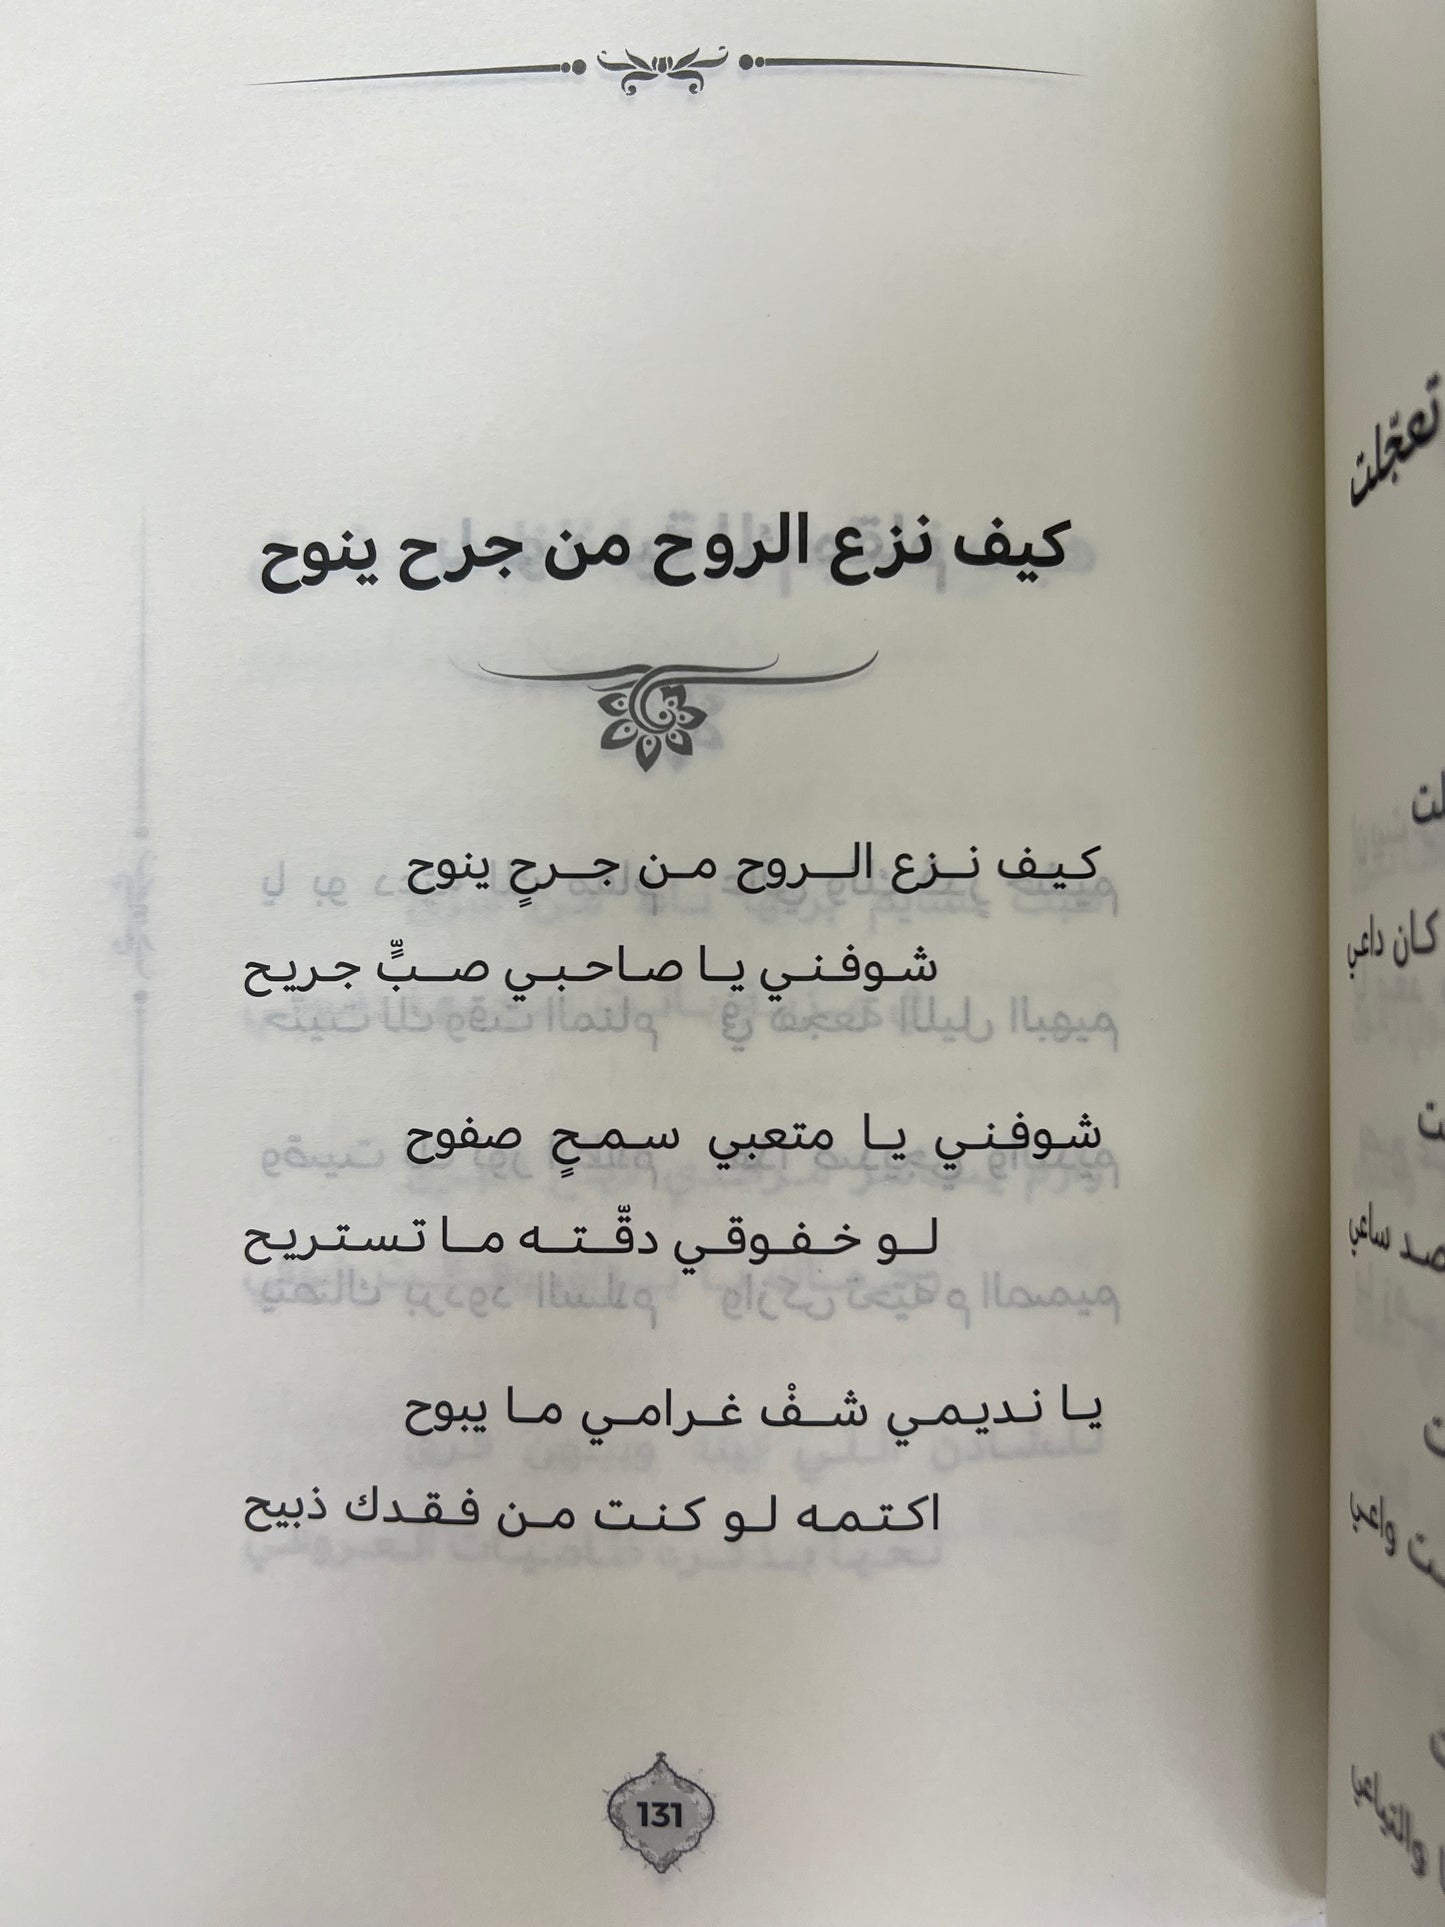 كيف نزع الروح من جرح ينوح
كيف نزع الروح من جرحٍ ينوح
شوفني يا صاحبي صبٍّ جريح
شوفني يا متعبي سمحٍ صفوح
لو خفوقي دقّته ما تستريح
يا نديمي شفْ غرامي ما يبوح
اكتمه لو كنت من فقدك ذبيح
131
تعجّلت
كان داعي
ساعي